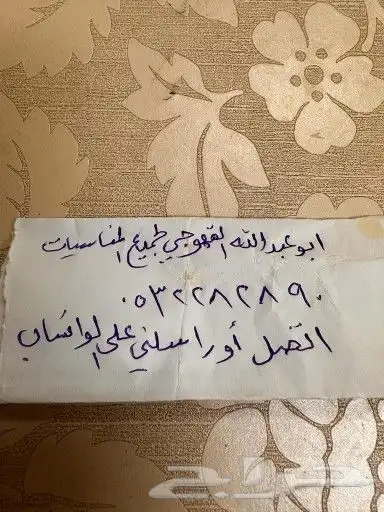 ابو عبدالله القهوجي لجميع المناسبات
٠٥٣٢٢٨٢٨٩٠
اتصل أو راسلني على الواتساب
حراج